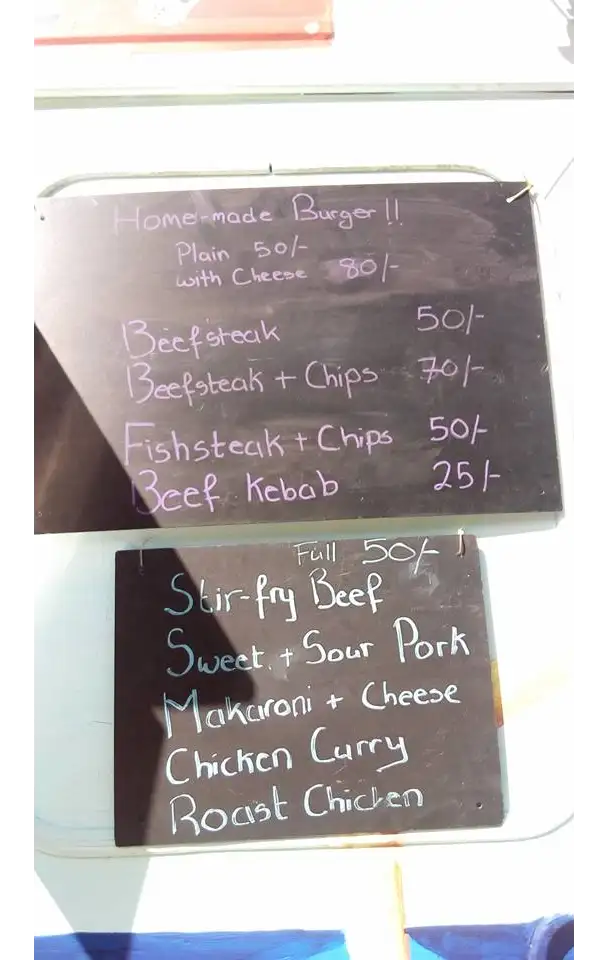 Home-made Burger!!
Plain 50/-
with Cheese 80/-
Beefsteak 50/-
Beefsteak + Chips 70/-
Fishsteak + Chips 50/-
Beef Kebab 25/-
Full 50/-
Stir-fry Beef
Sweet + Sour Pork
Makaroni + Cheese
Chicken Curry
Roast Chicken